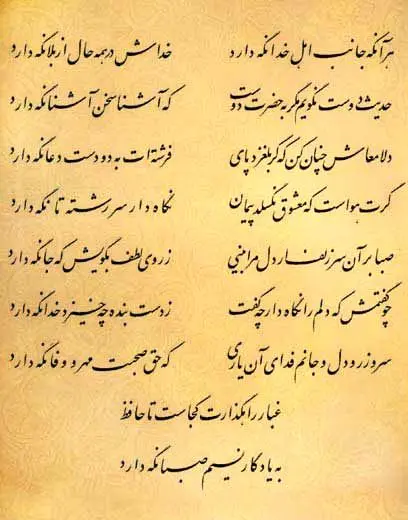 هر آنکه جانب اهل خدا نگه دارد خداش در همه حال از بلا نگه دارد
حدیث دوست نگویم مگر به حضرت دوست که آشنا سخن آشنا نگه دارد
دلا معاش چنان کن که گر بلغزد پای فرشته‌ات به دو دست دعا نگه دارد
گرت هواست که معشوق نگسلد پیمان نگاه دار سر رشته تا نگه دارد
صبا بر آن سر زلف ار دل مرا بینی ز روی لطف بگویش که جا نگه دارد
چو گفتمش که دلم را نگاه دار چه گفت ز دست بنده چه خیزد خدا نگه دارد
سر و زر و دل و جانم فدای آن یاری که حق صحبت مهر و وفا نگه دارد
غبار راهگذارت کجاست تا حافظ
به یادگار نسیم صبا نگه دارد